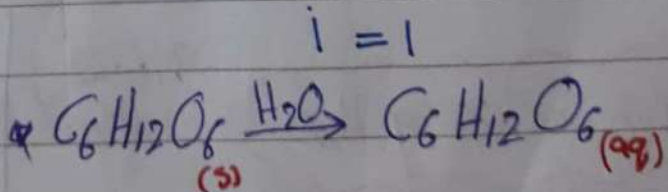 i = 1
* C₆H₁₂O₆(s) H₂O→ C₆H₁₂O₆(aq)